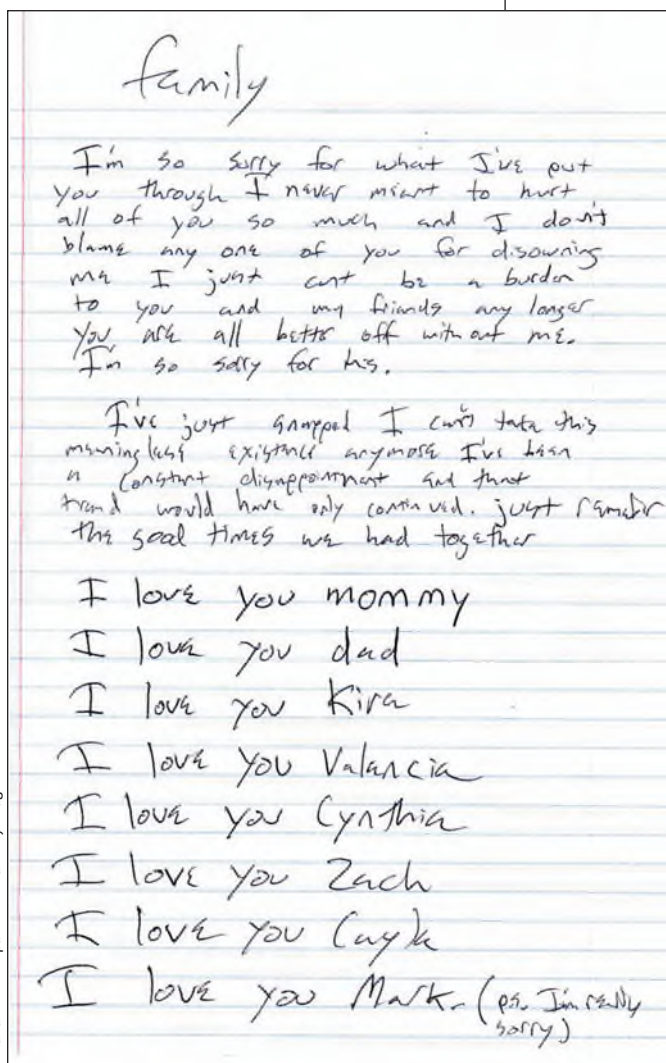 family
I'm so sorry for what I've put
you through I never meant to hurt
all of you so much and I don't
blame any one of you for disowning
me I just cant be a burden
to you and my friends any longer
you are all better off without me.
I'm so sorry for this.
I've just snapped I can't take this
meaningless existence anymore I've been
a constant disappointment and that
trend would have only continued. just remember
the good times we had together
I love you mommy
I love you dad
I love you Kira
I love you Valancia
I love you Cynthia
I love you Zach
I love you Cayla
I love you Mark. (ps. I'm really
sorry)